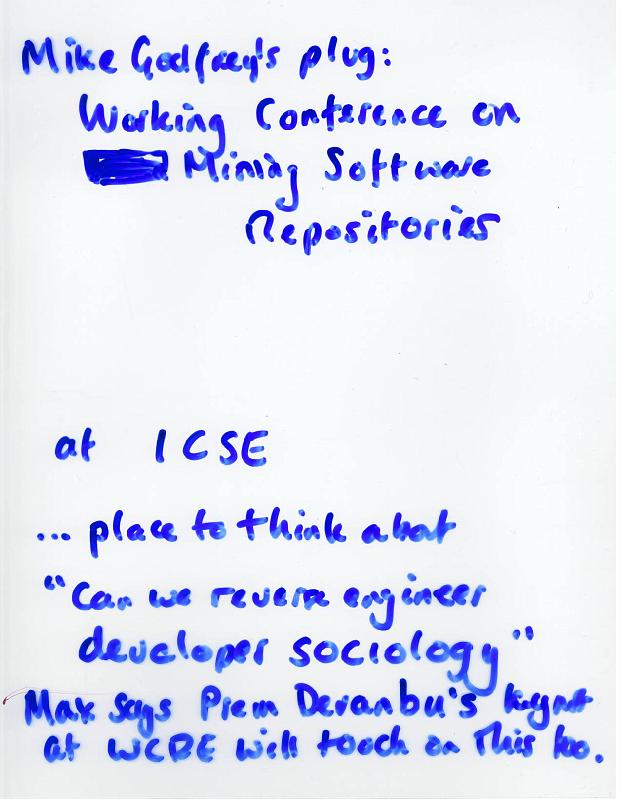 Mike Godfrey's plug:
Working Conference on
Mining Software
Repositories
at ICSE
... place to think about
"Can we reverse engineer
developer sociology"
Max says Prem Devanbu's keynote
at WCRE will touch on this too.